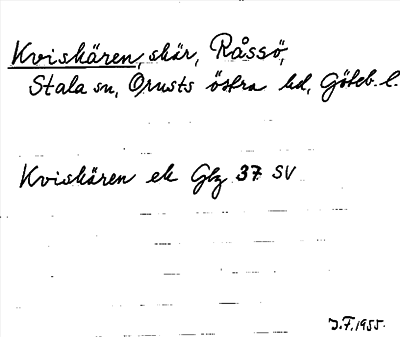 Kviskären, skär, Råssö,
Stala sn, Orusts östra hd, Göteb. l.
Kviskären ek Gbg 37 SV
J.F. 1955.